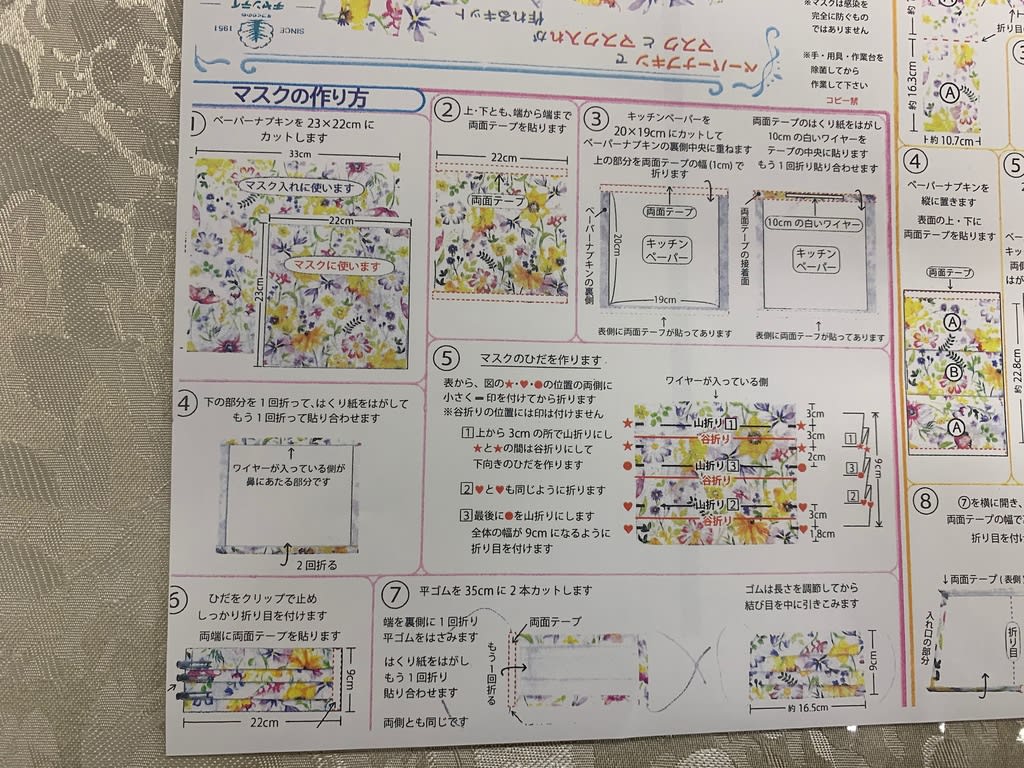 ペーパーナプキンで
マスクとマスク入れが
作れるキット
チャンティ
SINCE
1951
※マスクは感染を
完全に防ぐもの
ではありません
※手・用具・作業台を
除菌してから
作業して下さい
コピー禁
マスクの作り方
1
ペーパーナプキンを 23×22cmに
カットします
33cm
マスク入れに使います
22cm
マスクに使います
23cm
②
上・下とも、端から端まで
両面テープを貼ります
22cm
両面テープ
③
キッチンペーパーを
20×19cmにカットして
ペーパーナプキンの裏側中央に重ねます
上の部分を両面テープの幅(1cm)で
折ります
両面テープ
ペーパーナプキンの裏側
20cm
キッチン
ペーパー
19cm
表側に両面テープが貼ってあります
両面テープのはくり紙をはがし
10cmの白いワイヤーを
テープの中央に貼ります
もう1回折り貼り合わせます
両面テープの接着面
10cmの白いワイヤー
キッチン
ペーパー
表側に両面テープが貼ってあります
④
下の部分を1回折って、はくり紙をはがして
もう1回折って貼り合わせます
ワイヤーが入っている側が
鼻にあたる部分です
2回折る
⑤
マスクのひだを作ります
表から、図の★・♥・●の位置の両側に
小さく━印を付けてから折ります
※谷折りの位置には印は付けません
1 上から3cmの所で山折りにし
★と★の間は谷折りにして
下向きのひだを作ります
2 ♥と♥も同じように折ります
3 最後に●を山折りにします
全体の幅が9cmになるように
折り目を付けます
ワイヤーが入っている側
山折り1
谷折り
山折り3
谷折り
山折り2
谷折り
3cm
3cm
2cm
3cm
1.8cm
1
3
2
9cm
6
ひだをクリップで止め
しっかり折り目を付けます
両端に両面テープを貼ります
9cm
22cm
⑦
平ゴムを35cmに2本カットします
端を裏側に1回折り
平ゴムをはさみます
はくり紙をはがし
もう1回折り
貼り合わせます
両側とも同じです
両面テープ
もう1回折る
ゴムは長さを調節してから
結び目を中に引きこみます
9cm
約16.5cm
約16.3cm
A
約10.7cm
④
ペーパーナプキンを
縦に置きます
表面の上・下に
両面テープを貼ります
両面テープ
A
B
A
約22.8cm
⑤
⑧
⑦を横に開き、
両面テープの幅で
折り目を付け
両面テープ(表側)
入れ口の部分
折り目